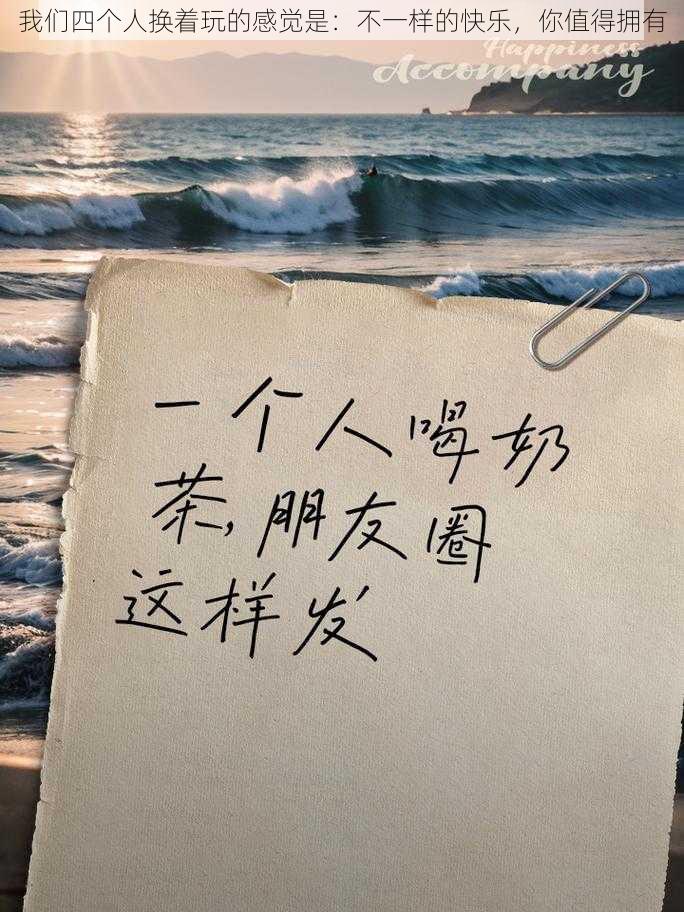 我们四个人换着玩的感觉是：不一样的快乐，你值得拥有
Happiness
Accompany
一个人喝奶
茶,朋友圈
这样发